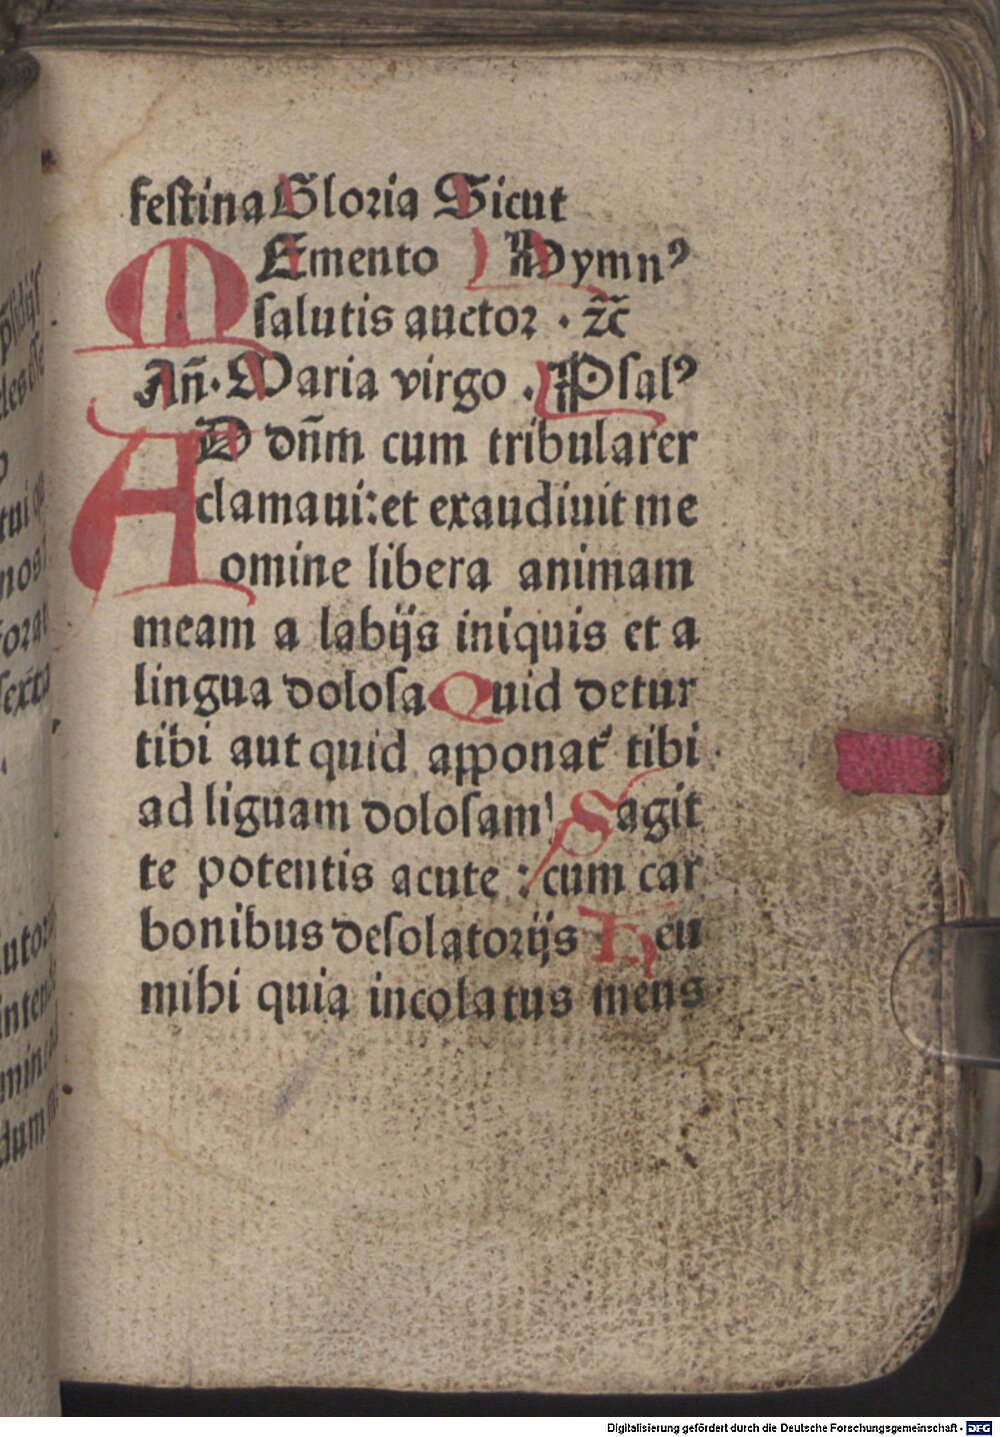 festina Gloria Sicut
MEmento Hymn⁹
salutis auctor · ⁊c̃
Añ. Maria virgo . Psal⁹
AD dñm cum tribularer
clamaui: et exaudiuit me
omine libera animam
meam a labijs iniquis et a
lingua dolosa Quid detur
tibi aut quid apponat᷑ tibi
ad liguam dolosam Sagit
te potentis acute : cum car
bonibus desolatorijs Heu
mihi quia incolatus meus
Digitalisierung gefördert durch die Deutsche Forschungsgemeinschaft - DFG